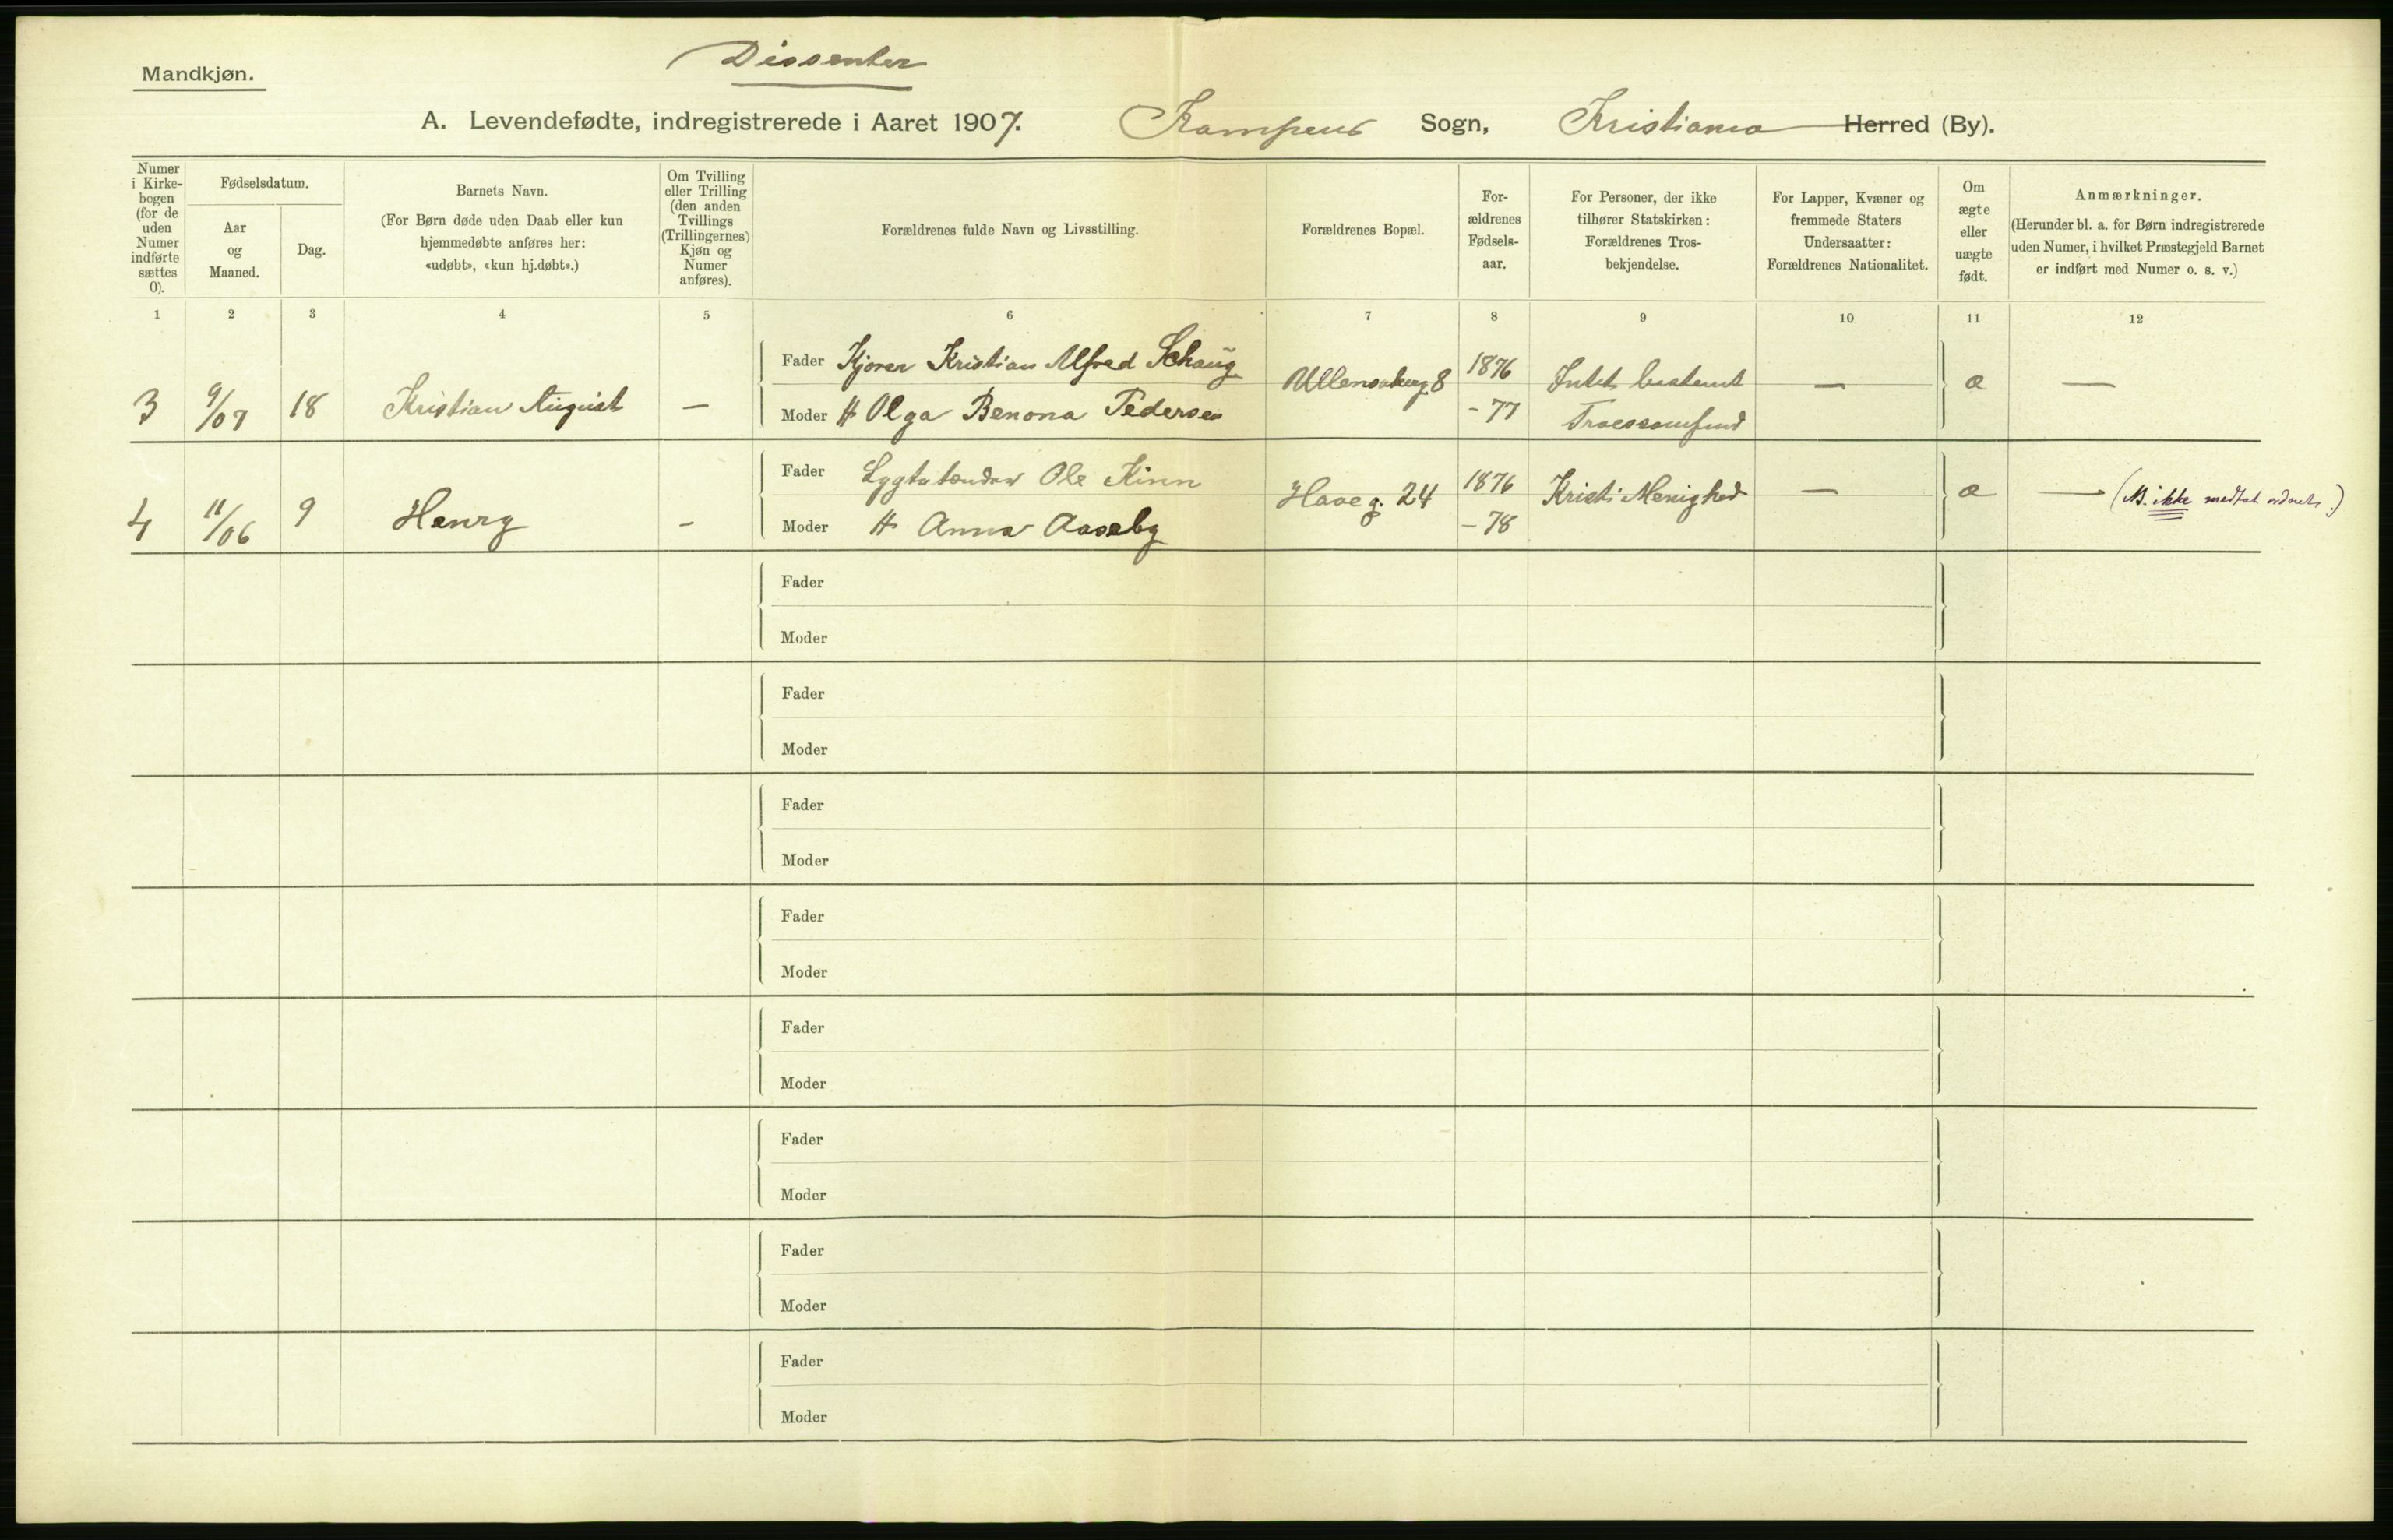 Mandkjøn.
Dissenter
A. Levendefødte, indregistrerede i Aaret 1907. Kampens Sogn, Kristiania Herred (By).
Numer i Kirke-bogen (for de uden Numer indførte sættes 0).
Fødselsdatum.
Aar og Maaned.
Dag.
Barnets Navn.
(For Børn døde uden Daab eller kun hjemmedøbte anføres her: «udøbt», «kun hj.døbt».)
Om Tvilling eller Trilling (den anden Tvillings (Trillingernes) Kjøn og Numer anføres).
Forældrenes fulde Navn og Livsstilling.
Forældrenes Bopæl.
For-ældrenes Fødsels-aar.
For Personer, der ikke tilhører Statskirken: Forældrenes Tros-bekjendelse.
For Lapper, Kvæner og fremmede Staters Undersaatter: Forældrenes Nationalitet.
Om ægte eller uægte født.
Anmærkninger.
(Herunder bl. a. for Børn indregistrerede uden Numer, i hvilket Præstegjeld Barnet er indført med Numer o. s. v.)
1 2 3 4 5 6 7 8 9 10 11 12
Fader Kjører Kristian Alfred Schaug 1876 Intet bestemt
3 9/07 18 Kristian August — Ullensakerg 8 — æ —
Moder H Olga Benona Pedersen - 77 Troessamfund
Fader Lygtetænder Ole Kinn 1876
4 11/06 9 Henry - Haveg. 24 Kristi Menighed — æ — (NB. ikke medtat .)
Moder H Anna Aaseby - 78
Fader
Moder
Fader
Moder
Fader
Moder
Fader
Moder
Fader
Moder
Fader
Moder
Fader
Moder
Fader
Moder